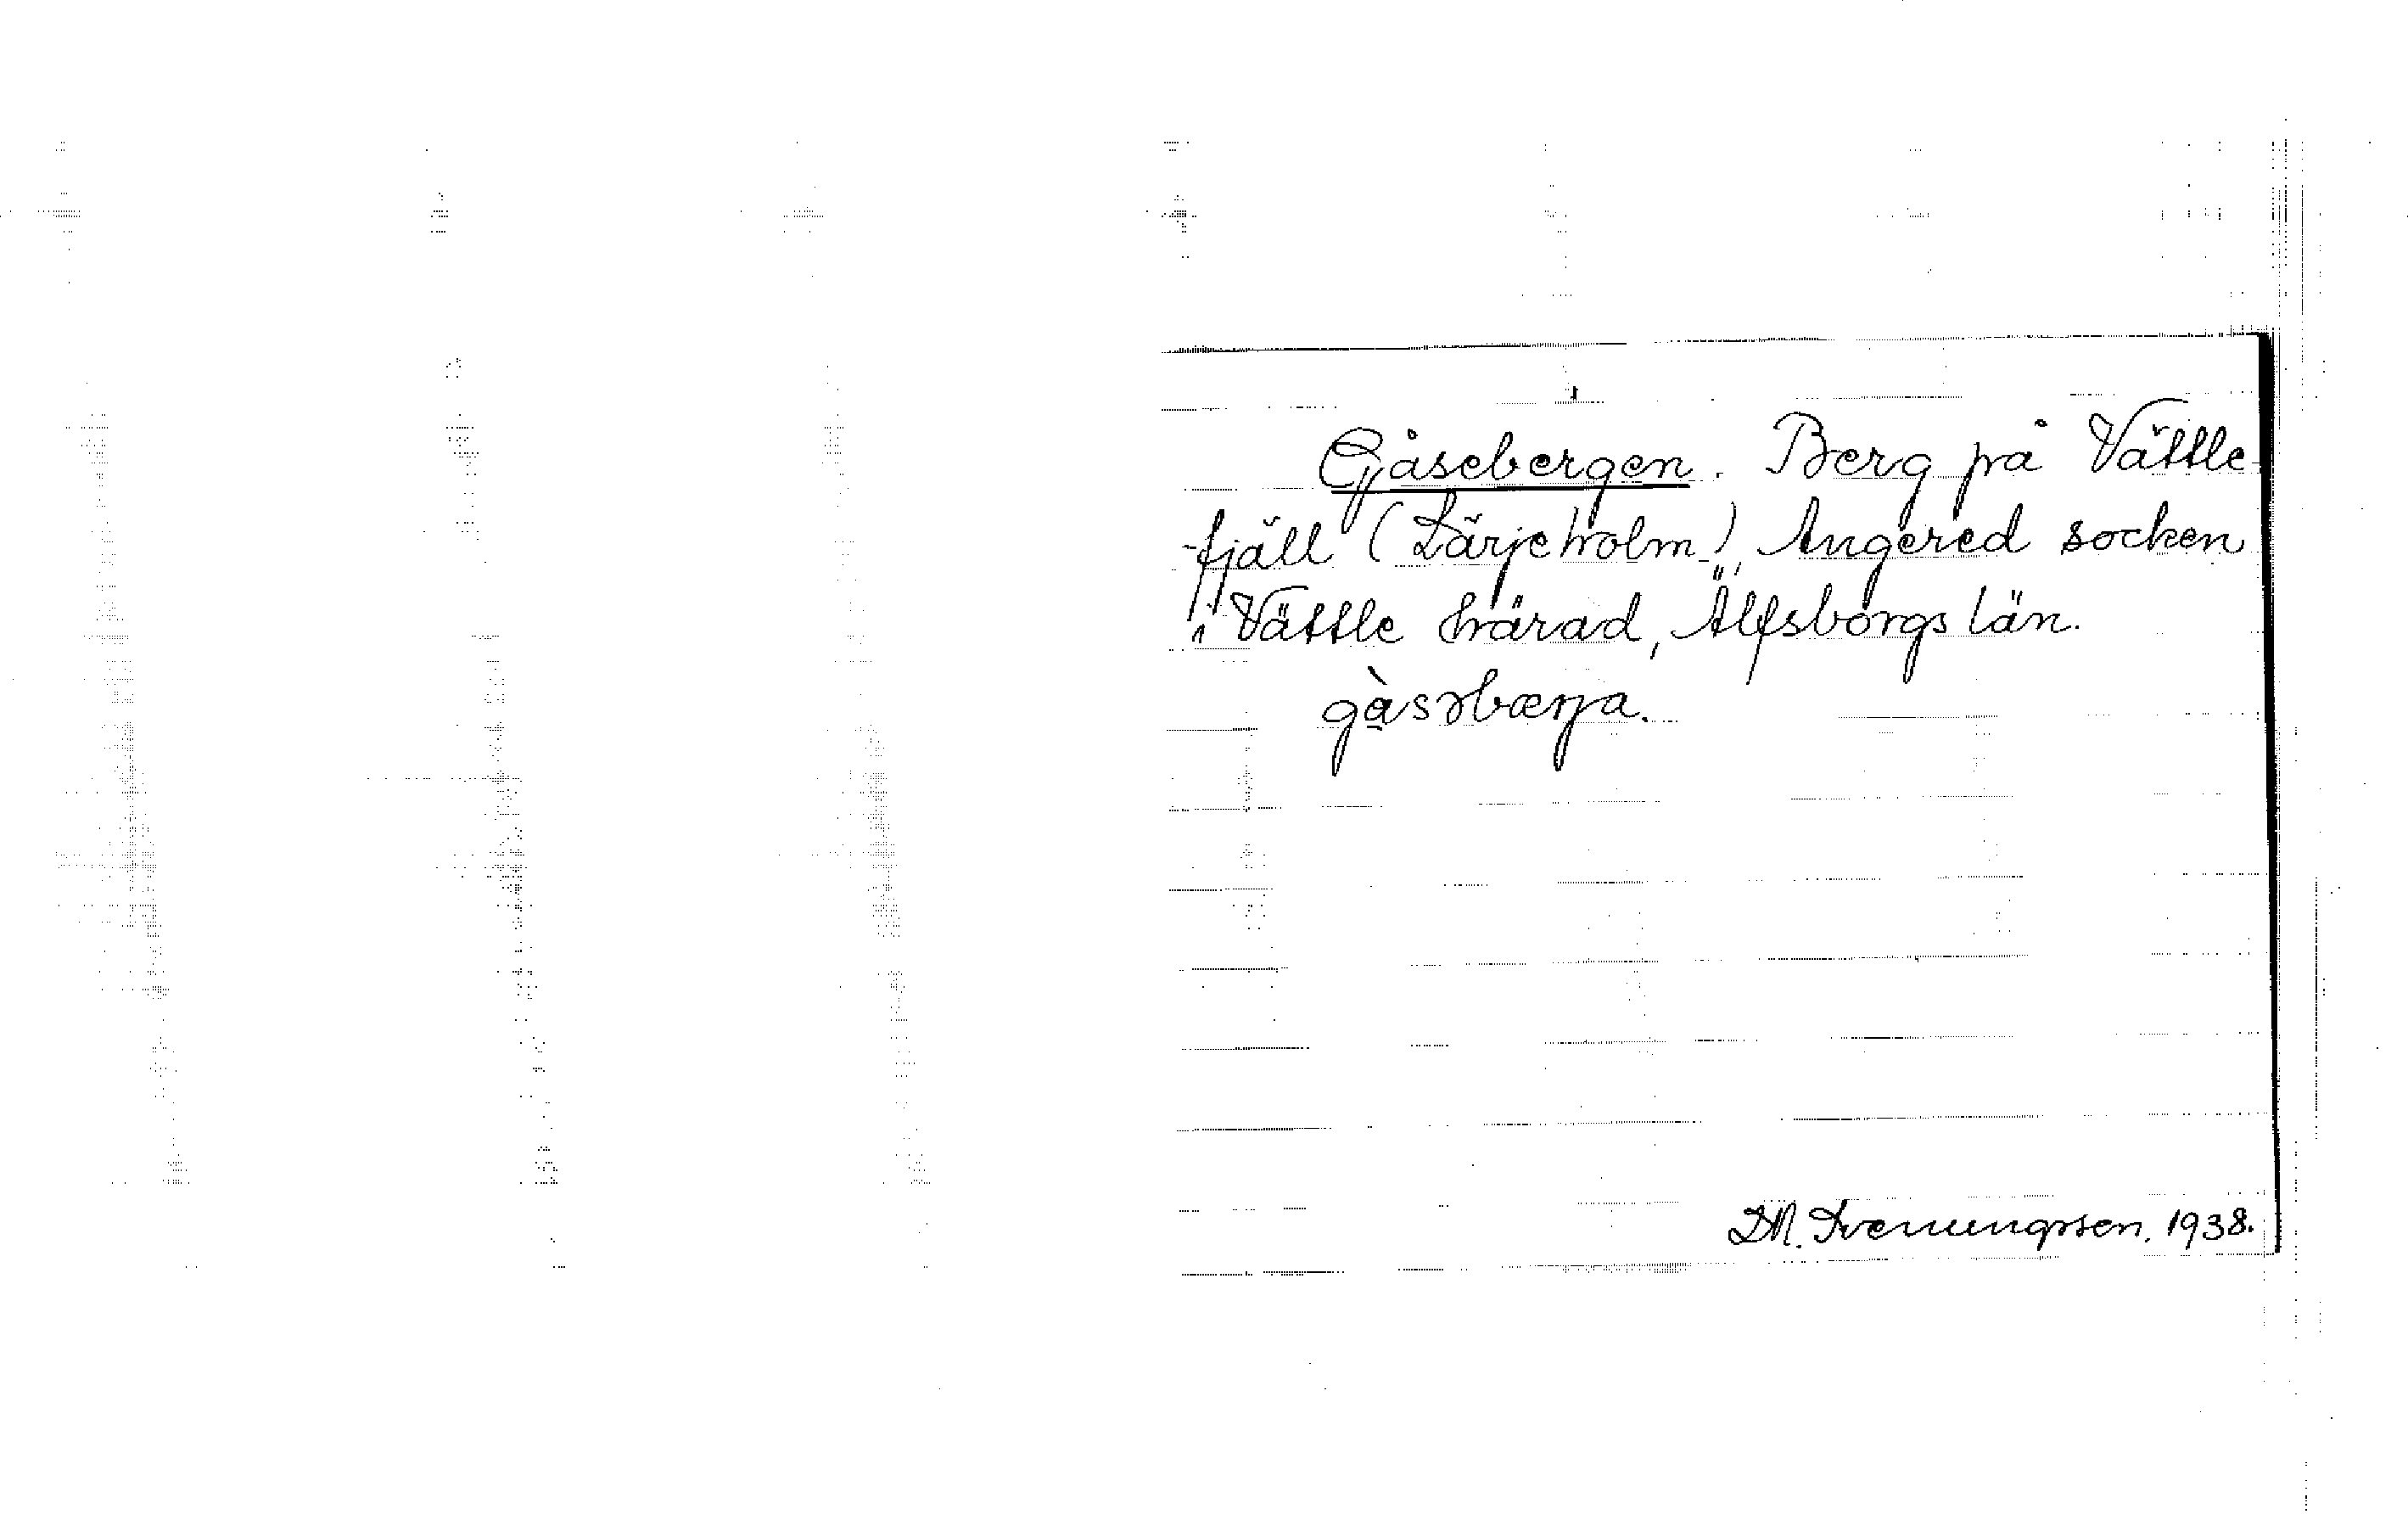 Gåsebergen. Berg på Vättle-
fjäll (Lärjeholm), Angered socken
i Vättle härad, Älfsborgs län.
gàsəbærja.
1938.